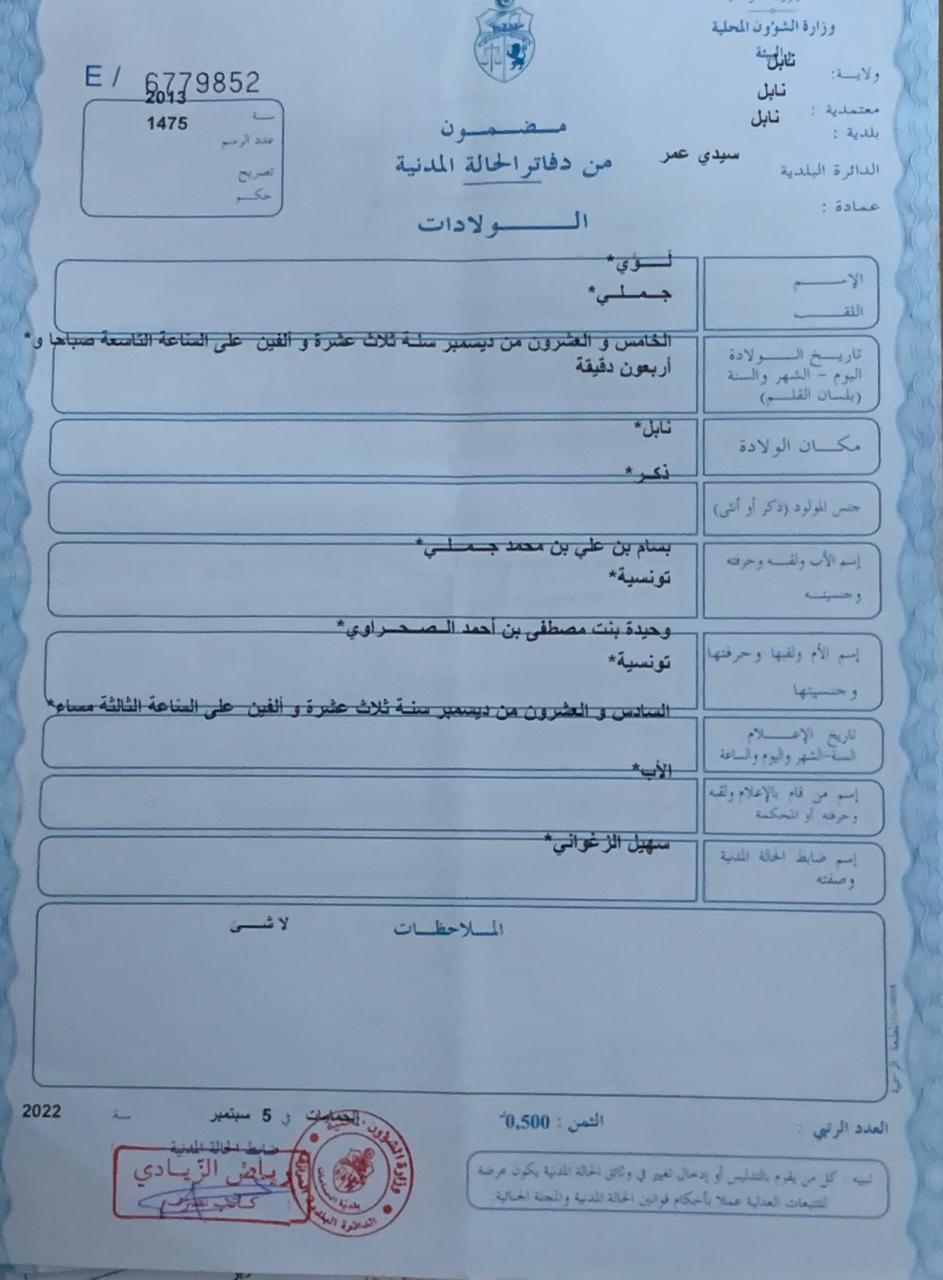 وزارة الشؤون المحلية
ولاية: نابل
معتمدية : نابل
بلدية : نابل
الدائرة البلدية سيدي عمر
عمادة :
E / 6779852
سنة 2013
عدد الرسم 1475
تصريح
حكم
مضمون
من دفاتر الحالة المدنية
الولادات
الاسم لـؤي*
اللقب جملي*
تاريخ الولادة
اليوم - الشهر والسنة
(بلسان القلم)
الخامس و العشرون من ديسمبر سنة ثلاث عشرة و ألفين على الساعة التاسعة صباحا و*
أربعون دقيقة
مكان الولادة نابل*
جنس المولود (ذكر أو أنثى) ذكر*
إسم الأب ولقبه وحرفته
وجنسيته
بسام بن علي بن محمد جملي*
تونسية*
إسم الأم ولقبها وحرفتها
وجنسيتها
وحيدة بنت مصطفى بن أحمد الصحراوي*
تونسية*
تاريخ الإعلام
السنة-الشهر واليوم والساعة
السادس و العشرون من ديسمبر سنة ثلاث عشرة و ألفين على الساعة الثالثة مساء*
إسم من قام بالإعلام ولقبه
وحرفته أو المحكمة
الأب*
إسم ضابط الحالة المدنية
وصفته
سهيل الزغواني*
الملاحظات لا شئ
العدد الرتبي :
الثمن : 0,500
الحمامات في 5 سبتمبر سنة 2022
ضابط الحالة المدنية
رياض الزيادي
كاتب
وزارة الشؤون المحلية
الدائرة البلدية
تنبيه : كل من يقوم بالتدليس أو إدخال تغيير في وثائق الحالة المدنية يكون عرضة
للتتبعات العدلية عملا بأحكام قوانين الحالة المدنية والمجلة الجنائية.